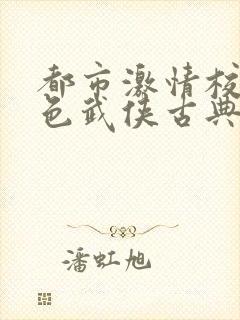 都市激情校
色武侠古典
潘虹旭